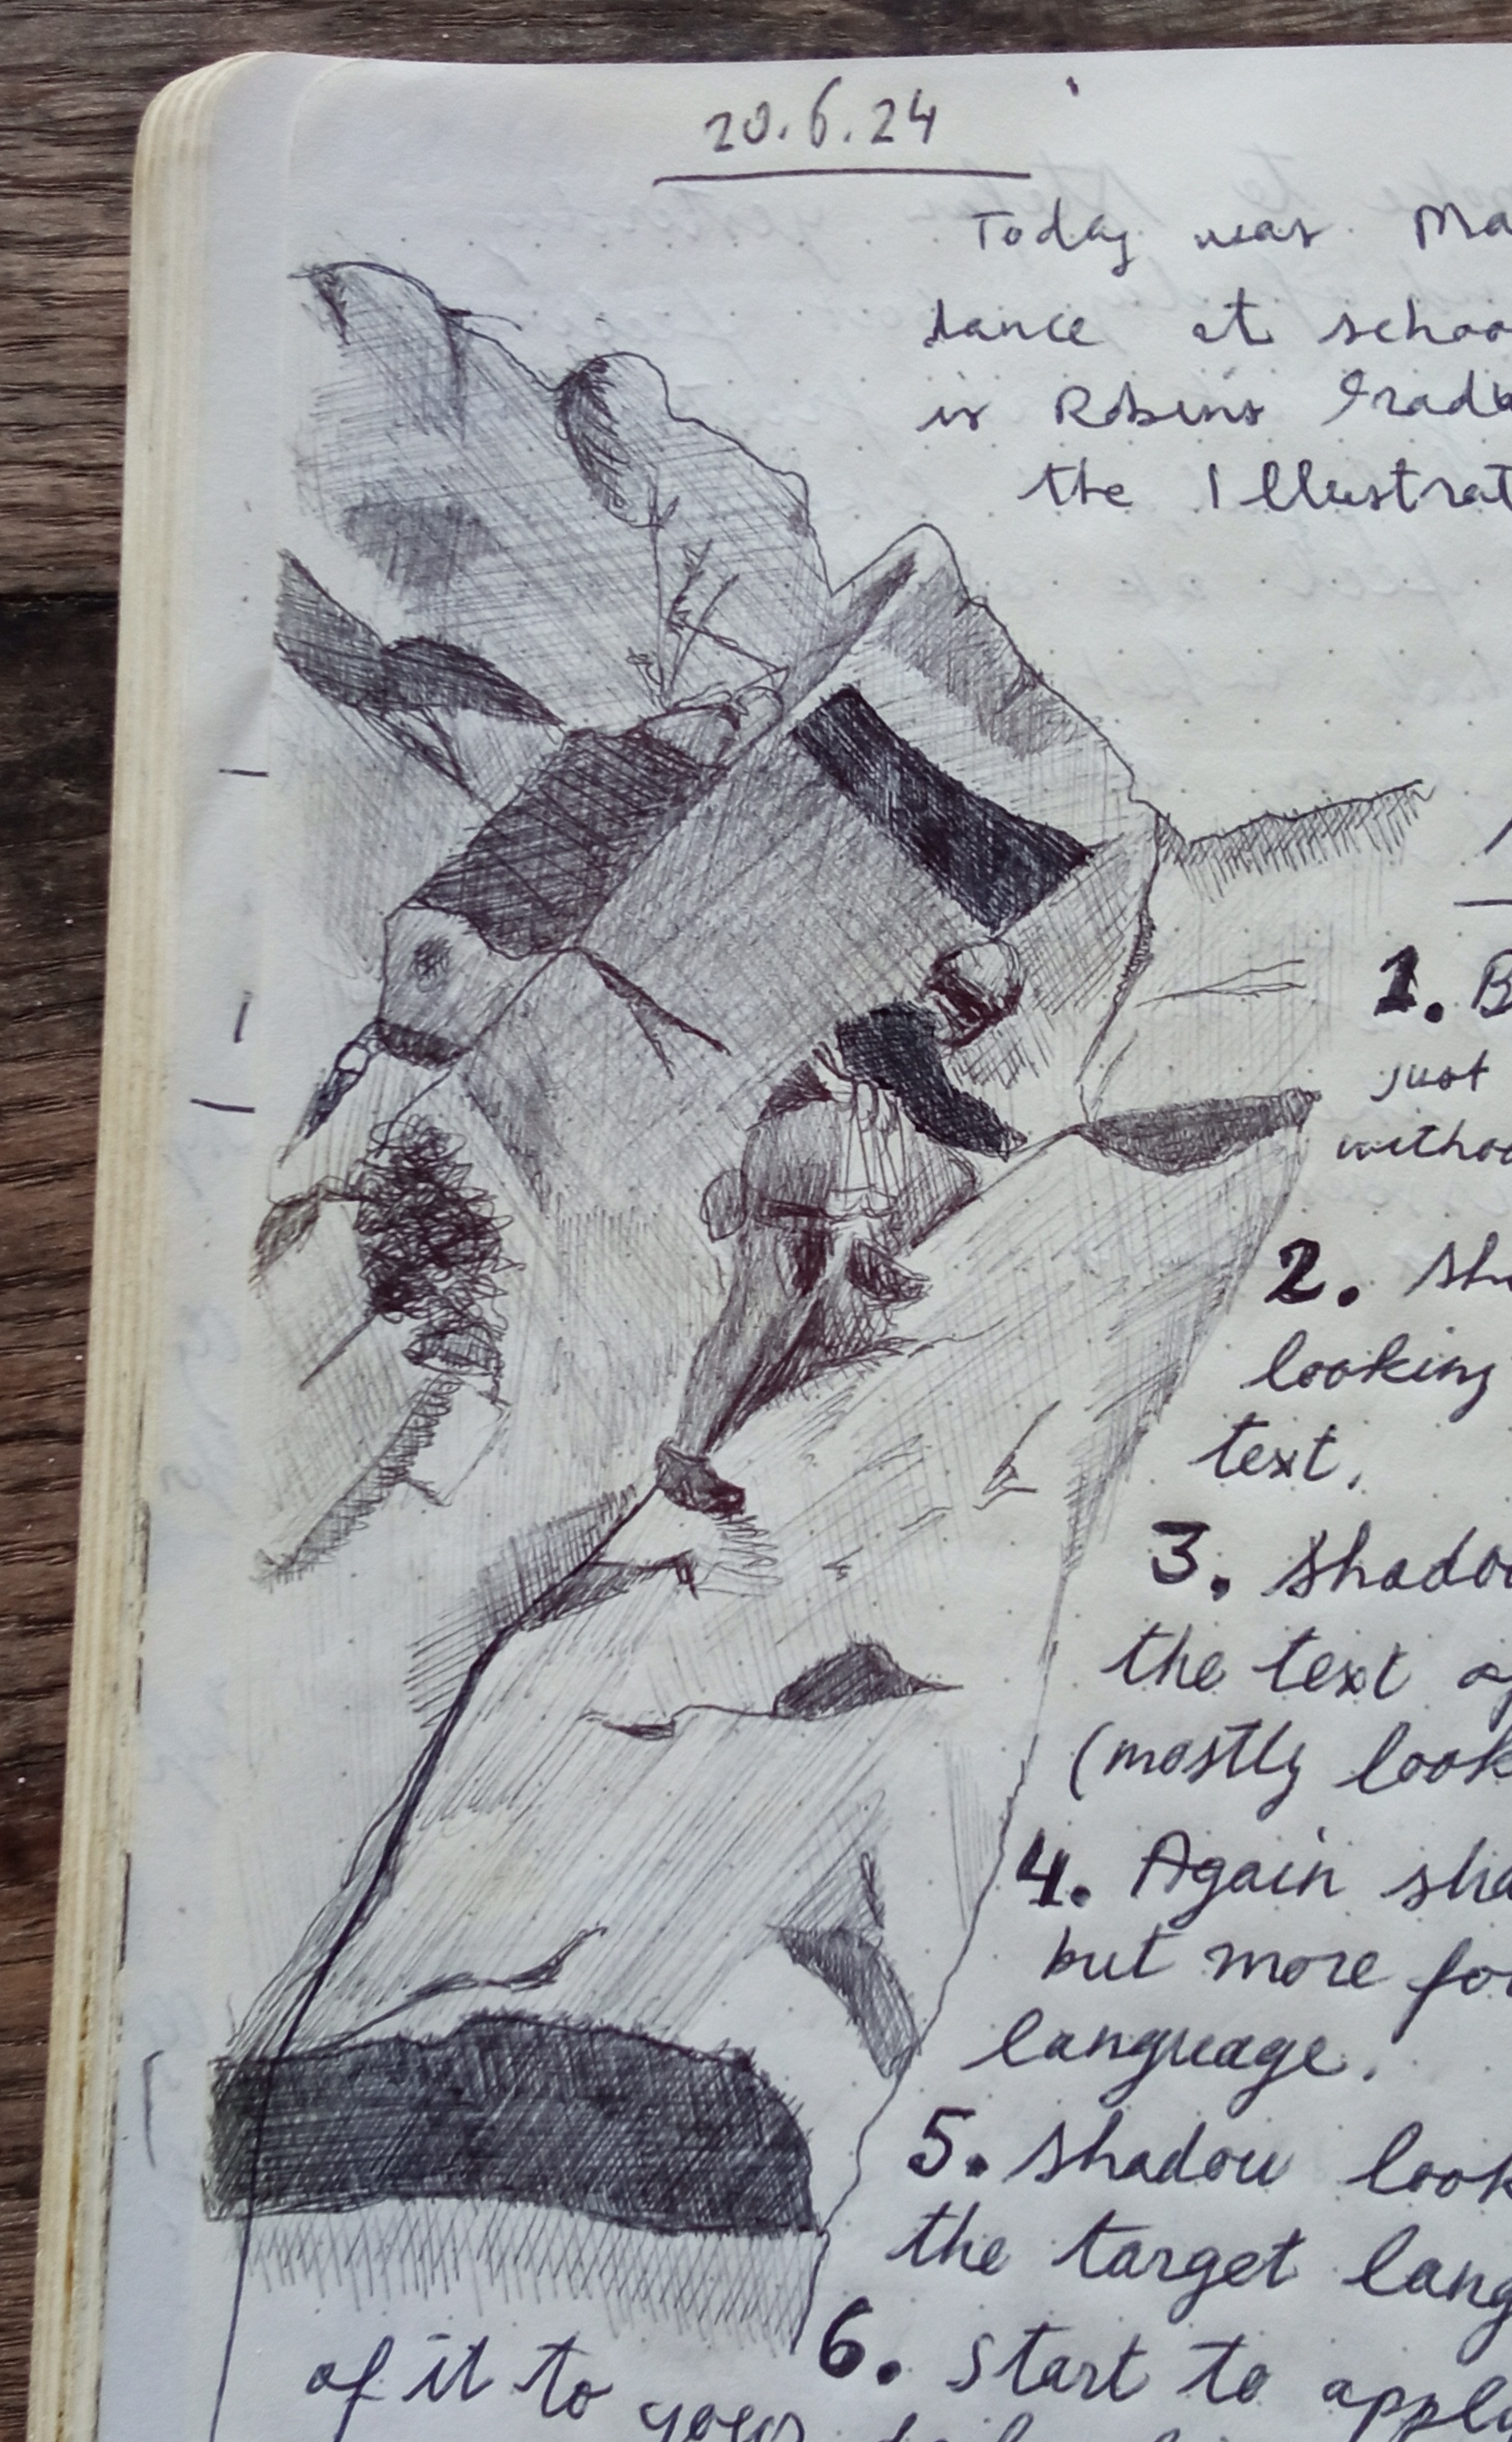 20.6.24
Today was Ma
dance at schoo
is Robins Gradu
the Illustrat
1. B
just
withou
2. Sh
looking
text.
3. Shadow
the text o
(mostly look
4. Again sha
but more fo
language.
5. Shadow look
the target lang
6. Start to apply
of it to your